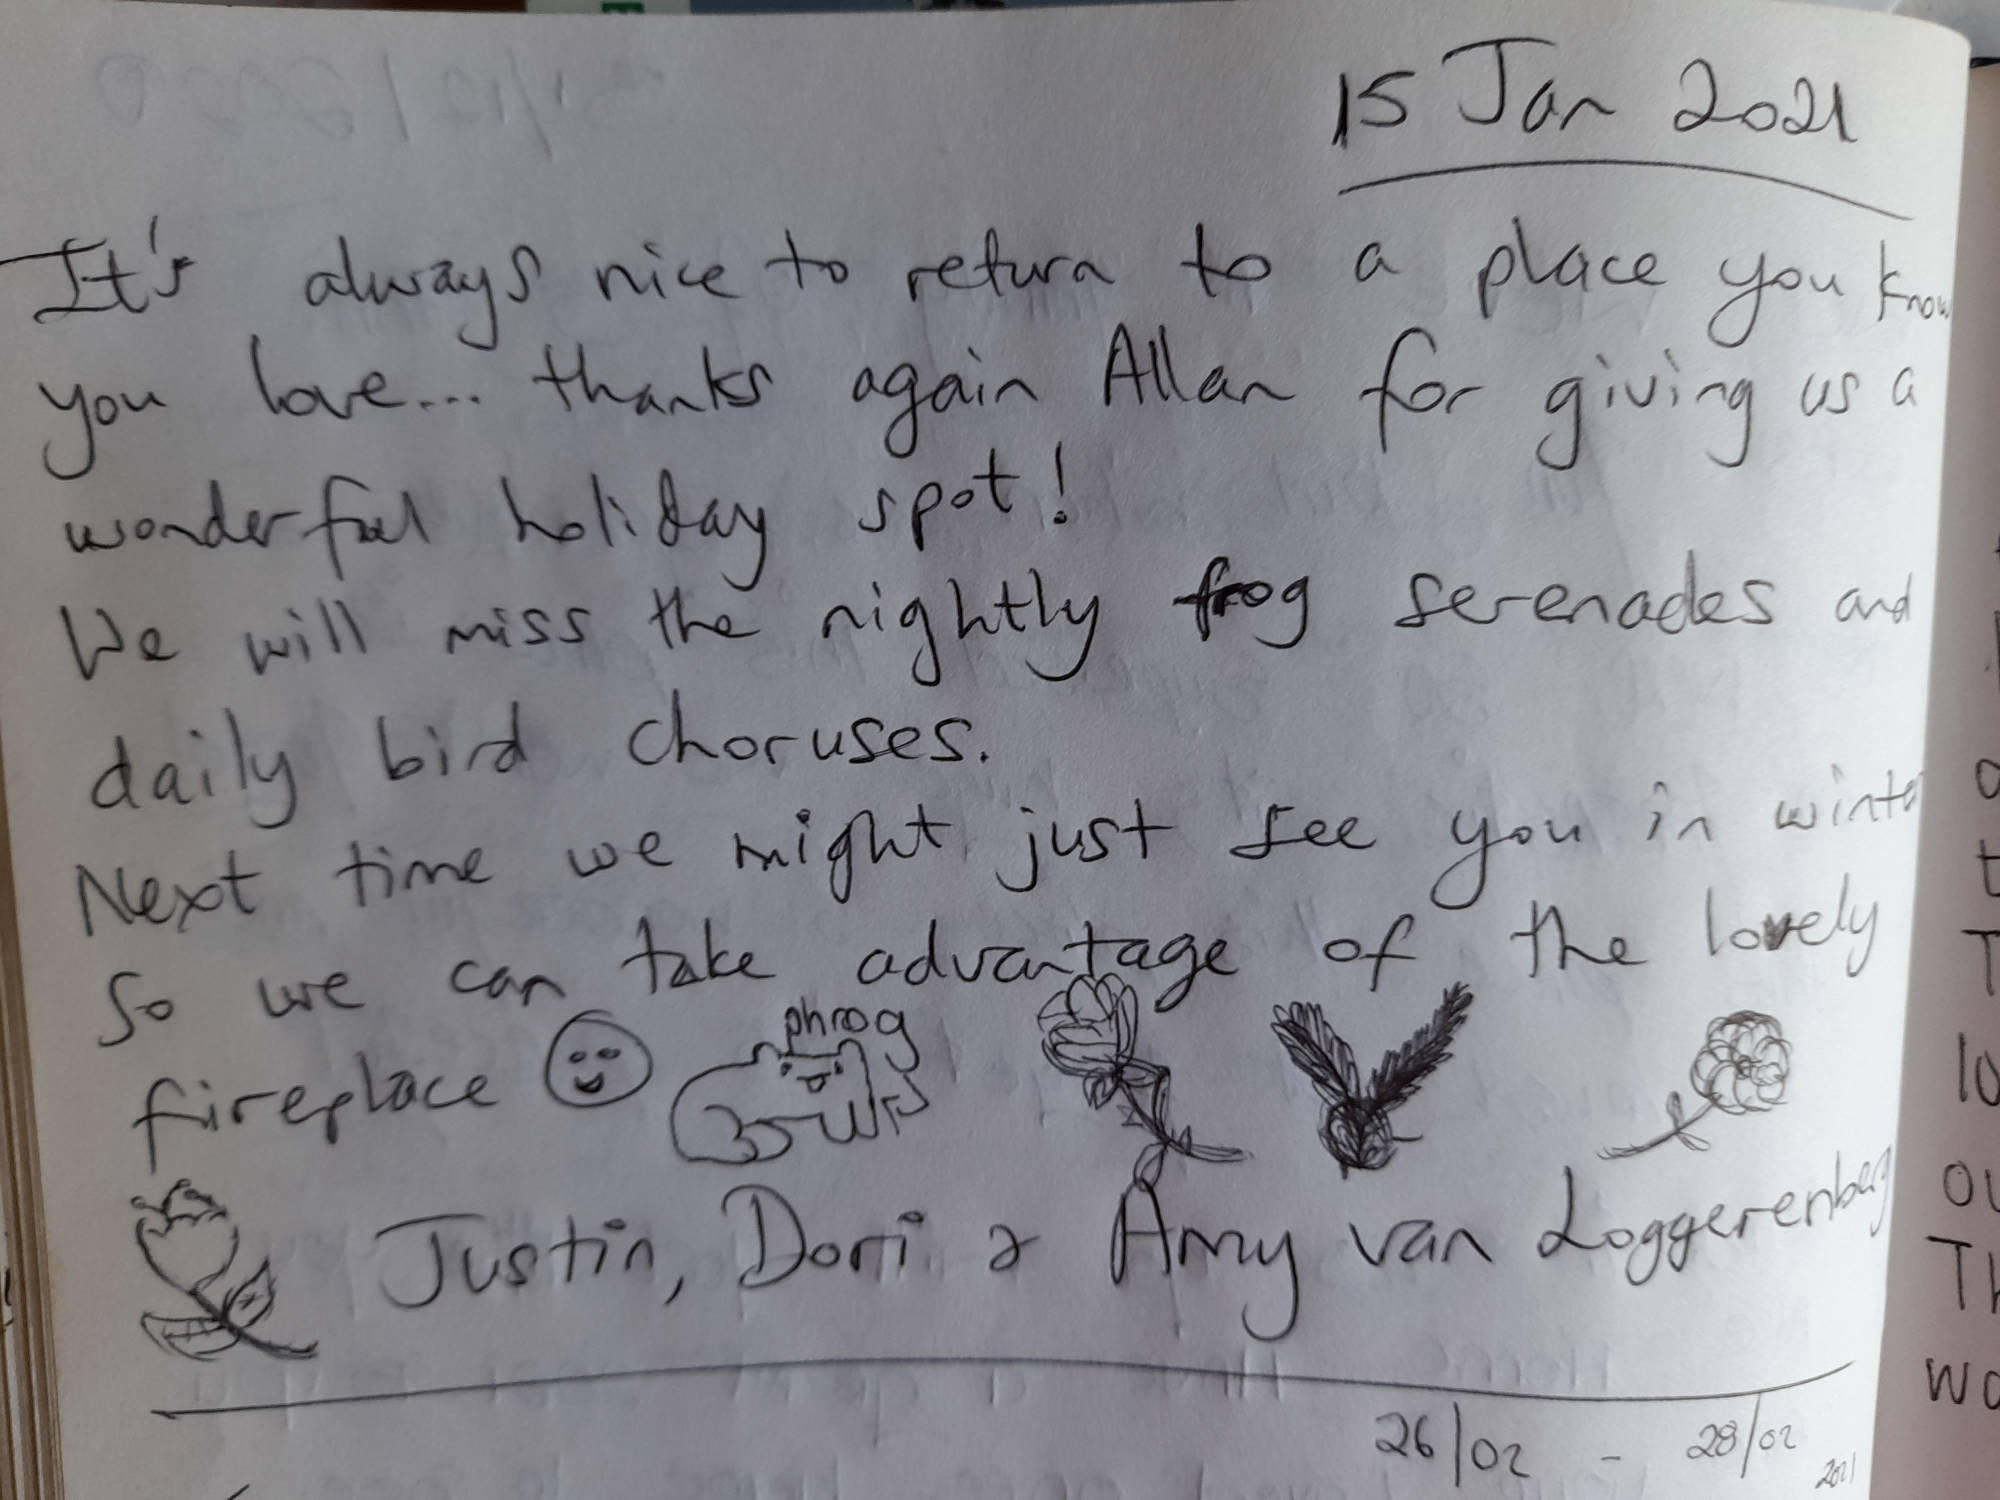 15 Jan 2021
It's always nice to return to a place you know
you love... thanks again Allan for giving us a
wonderful holiday spot!
We will miss the nightly frog serenades and
daily bird choruses.
Next time we might just see you in winter
So we can take advantage of the lovely
fireplace
phrog
Justin, Dorri & Amy van Loggerenberg
26/02 - 28/02
2021